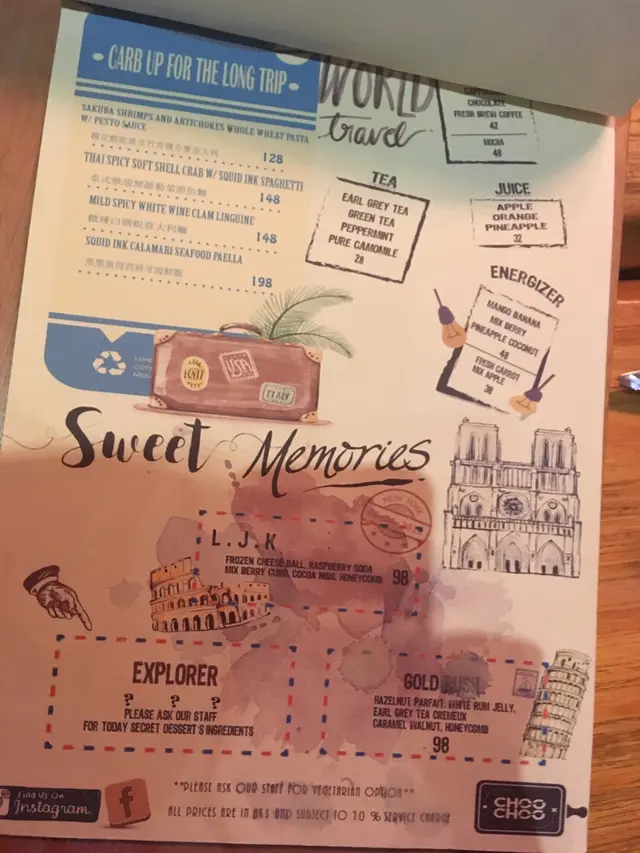 CARB UP FOR THE LONG TRIP
SAKURA SHRIMPS AND ARTICHOKES WHOLE WHEAT PASTA
W/ PESTO SAUCE
128
THAI SPICY SOFT SHELL CRAB W/ SQUID INK SPAGHETTI
148
MILD SPICY WHITE WINE CLAM LINGUINE
148
SQUID INK CALAMARI SEAFOOD PAELLA
198
WORLD
travel
CHOCOLATE
FRESH BREW COFFEE
42
MOCHA
48
TEA
EARL GREY TEA
GREEN TEA
PEPPERMINT
PURE CAMOMILE
28
JUICE
APPLE
ORANGE
PINEAPPLE
32
ENERGIZER
MANGO BANANA
MIX BERRY
PINEAPPLE COCONUT
48
FRESH CARROT
MIX APPLE
38
USA
ITALY
Sweet Memories
NEW YORK
L.J.K
FROZEN CHEESE BALL, RASPBERRY SODA
MIX BERRY CURD, COCOA NIBS, HONEYCOMB 98
EXPLORER
? ? ?
PLEASE ASK OUR STAFF
FOR TODAY SECRET DESSERT'S INGREDIENTS
GOLD RUSH
HAZELNUT PARFAIT, WHITE RUM JELLY,
EARL GREY TEA CREMEUX
CARAMEL WALNUT, HONEYCOMB
98
**PLEASE ASK OUR STAFF FOR VEGETARIAN OPTION**
ALL PRICES ARE IN HK$ AND SUBJECT TO 10 % SERVICE CHARGE
Find us on
Instagram
f
CHOO
CHOO